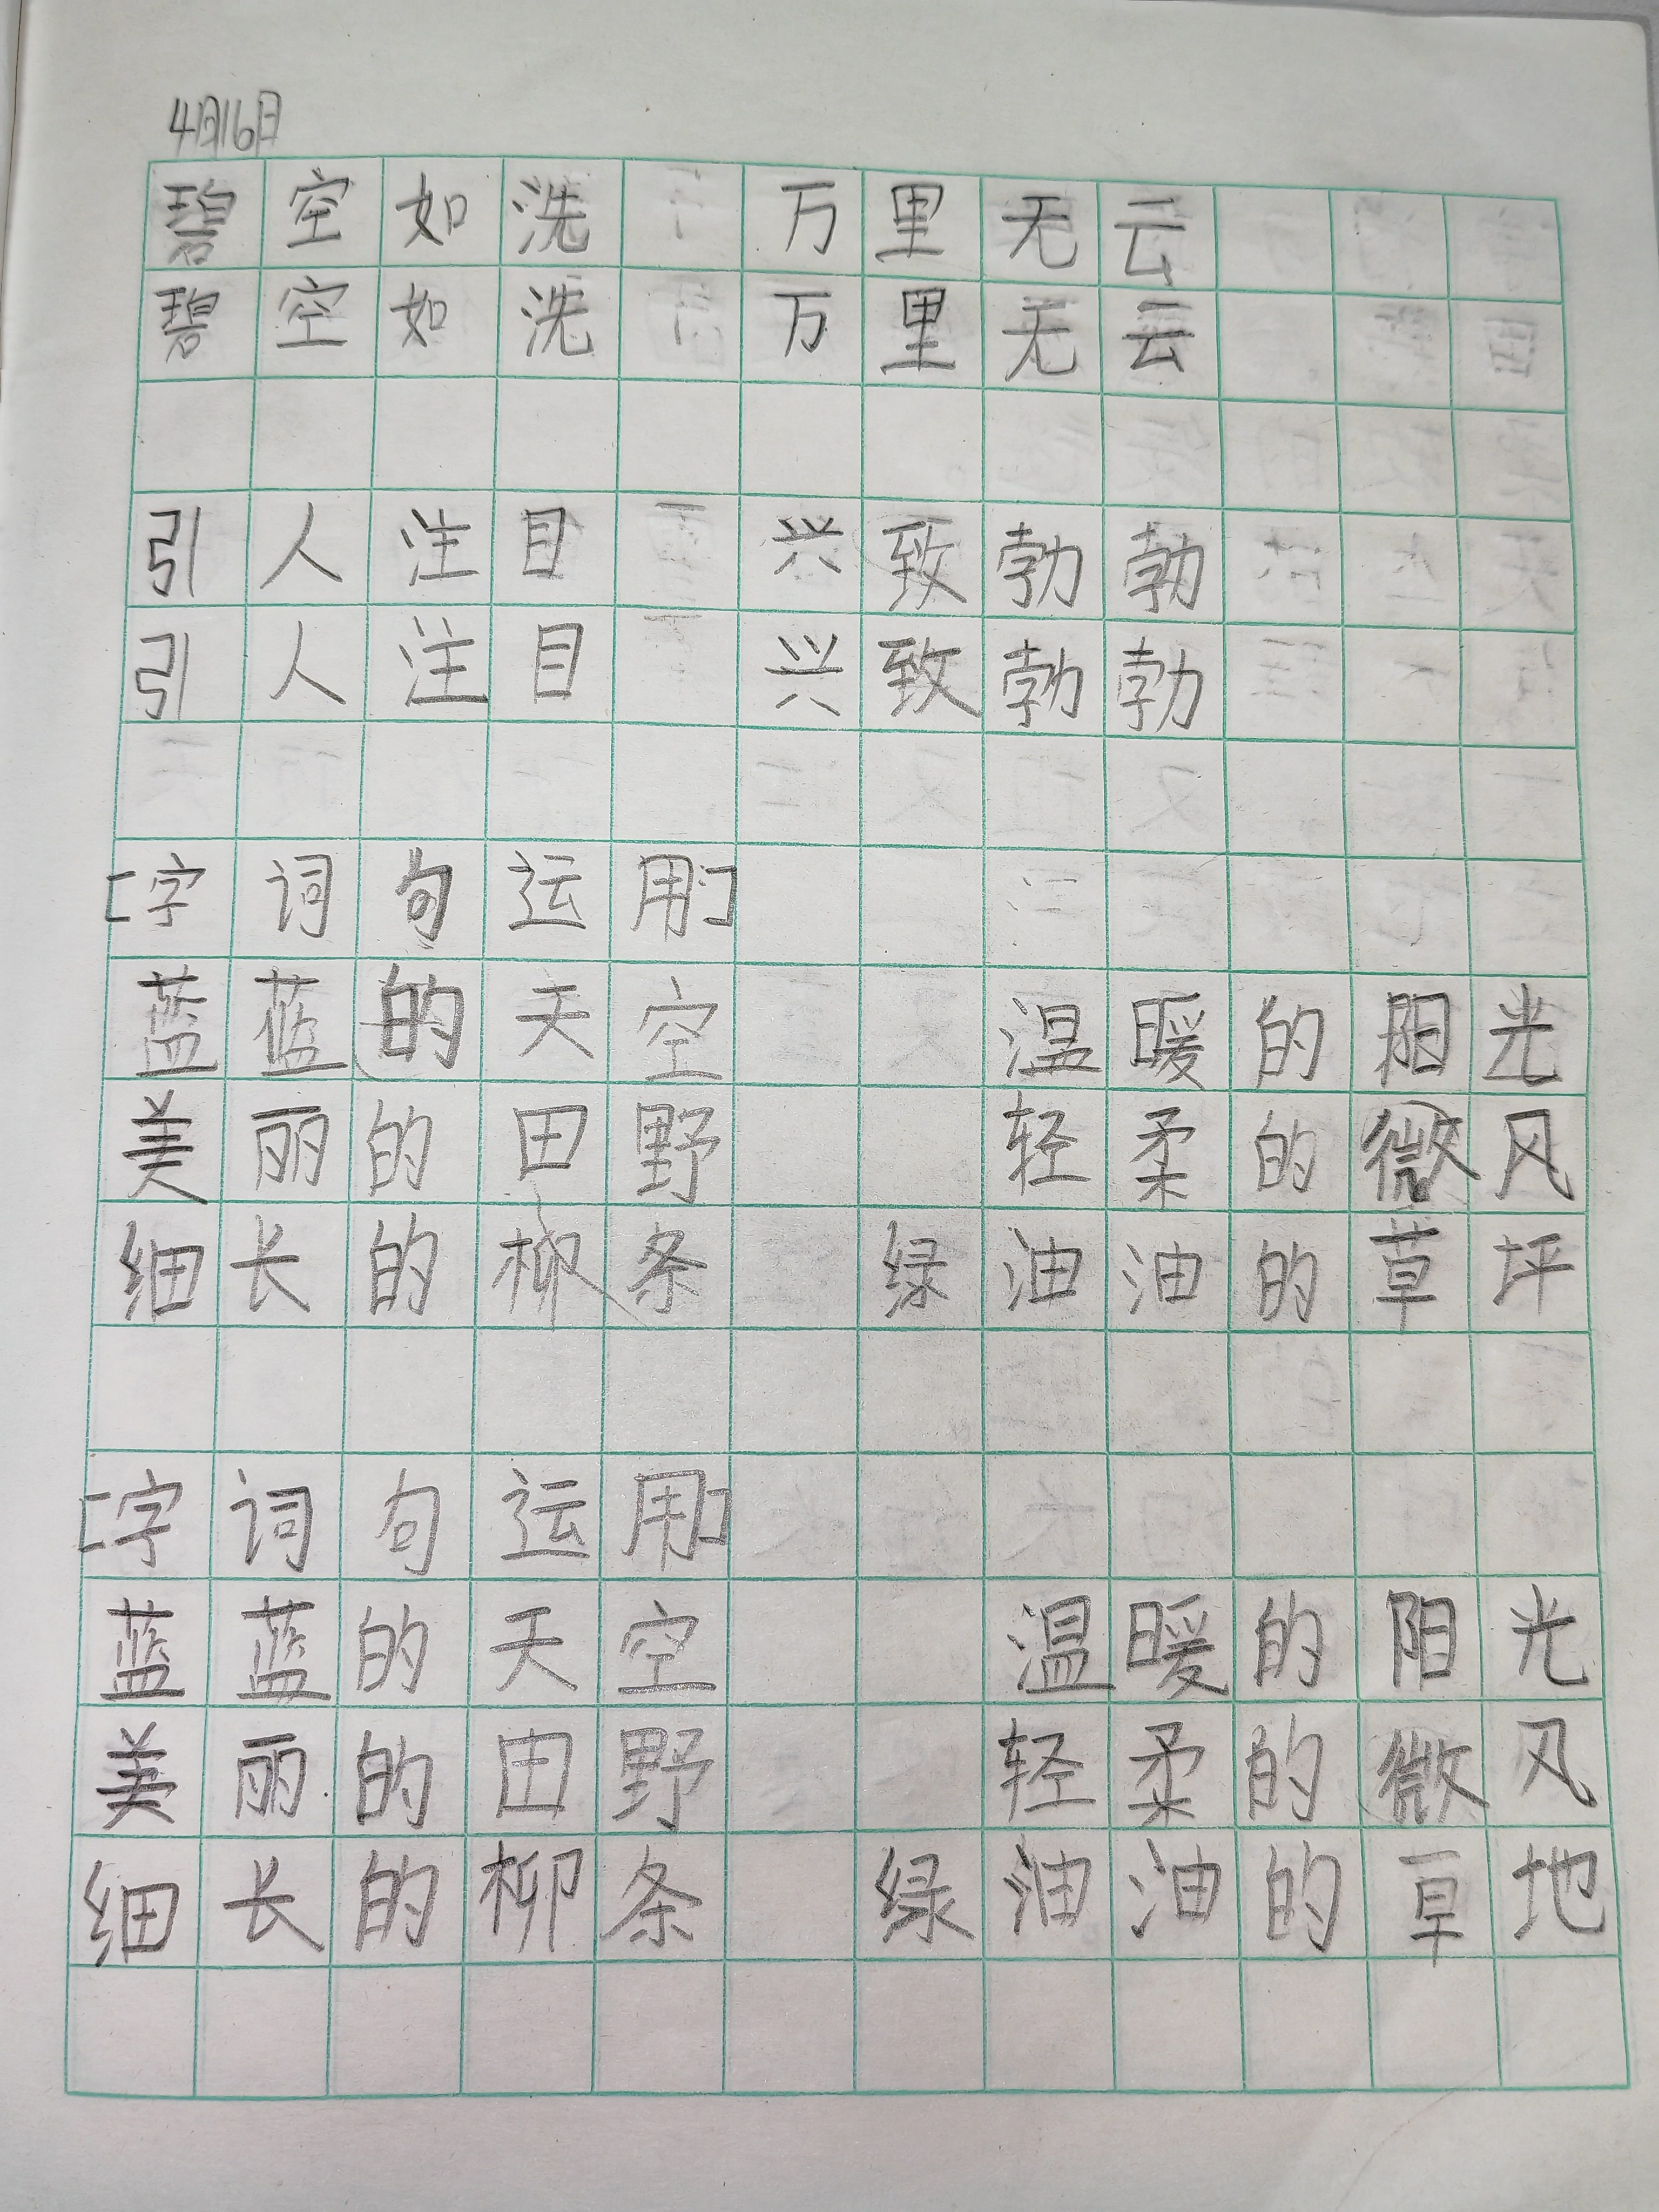 4月16日
碧空如洗 万里无云
碧空如洗 万里无云
引人注目 兴致勃勃
引人注目 兴致勃勃
[字词句运用]
蓝蓝的天空 温暖的阳光
美丽的田野 轻柔的微风
细长的柳条 绿油油的草坪
[字词句运用]
蓝蓝的天空 温暖的阳光
美丽的田野 轻柔的微风
细长的柳条 绿油油的草地